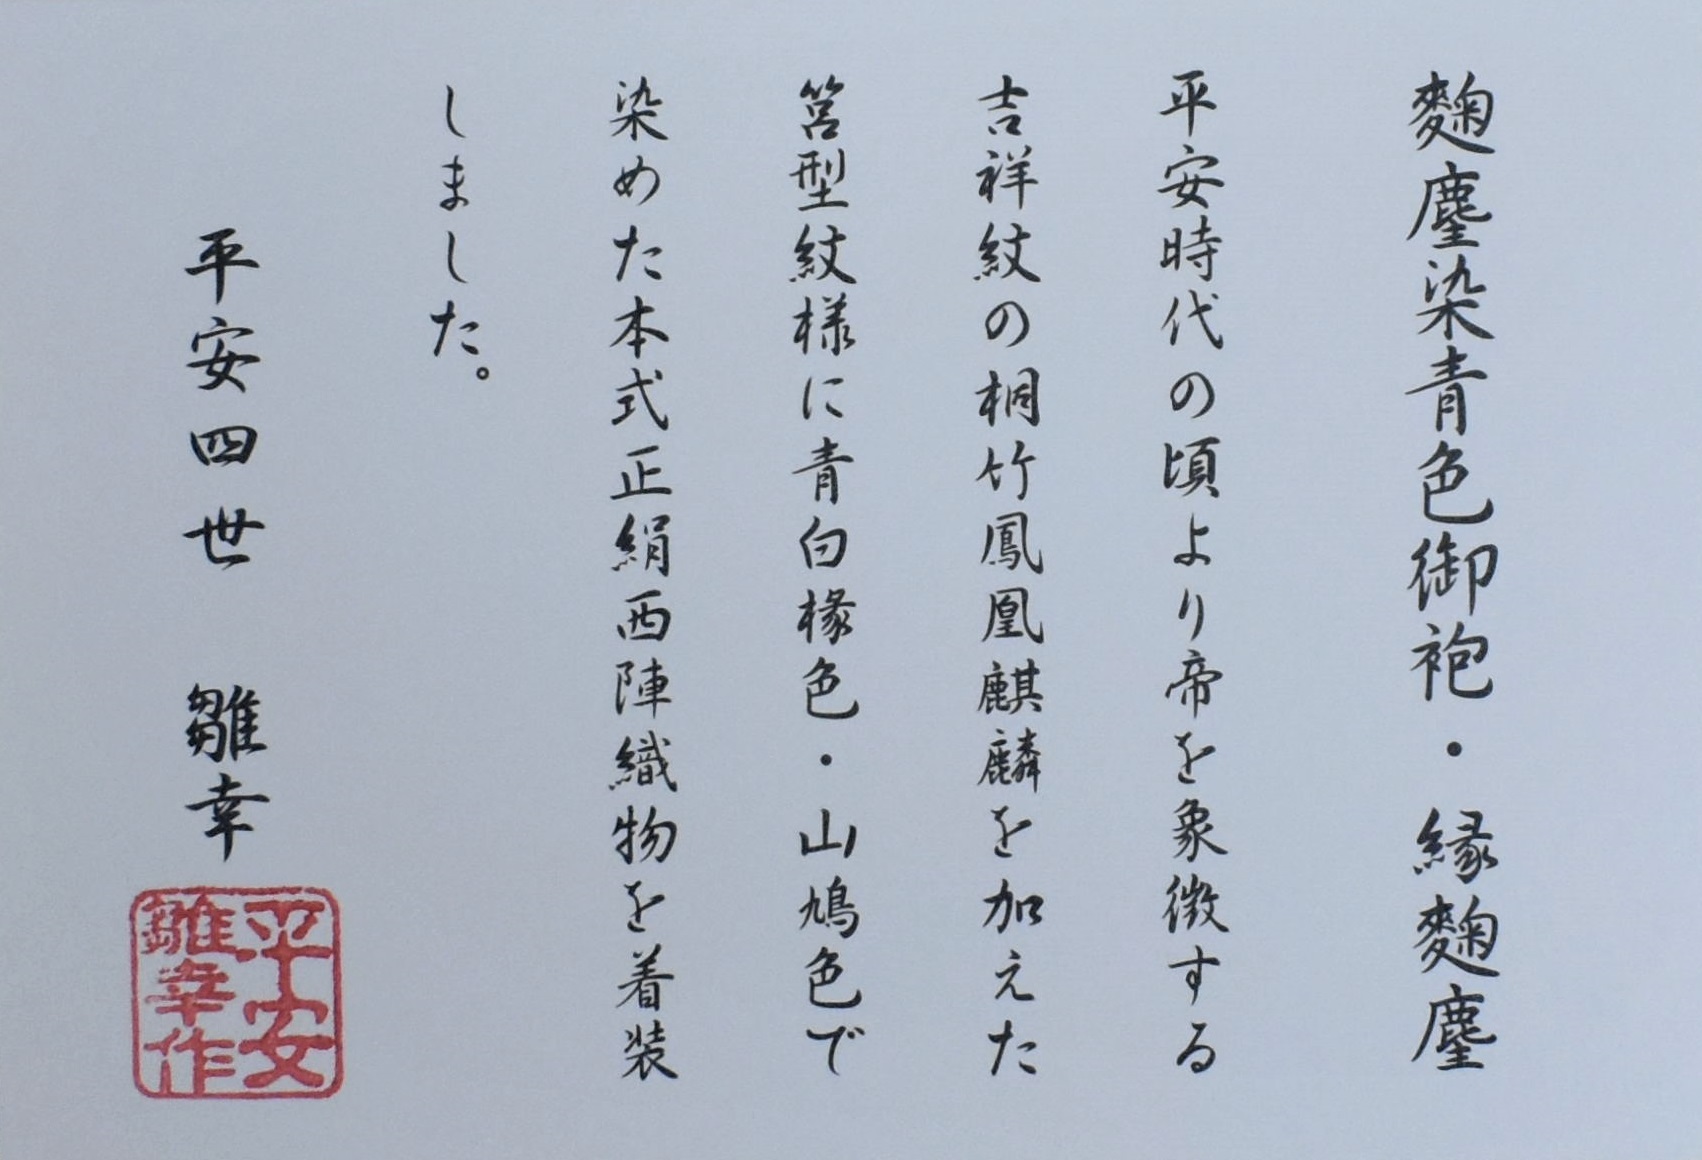 麴塵染青色御袍・縁麴塵
平安時代の頃より帝を象徴する
吉祥紋の桐竹鳳凰麒麟を加えた
筥型紋様に青白橡色・山鳩色で
染めた本式正絹西陣織物を着装
しました。
平安四世 雛幸
平安
雛幸作